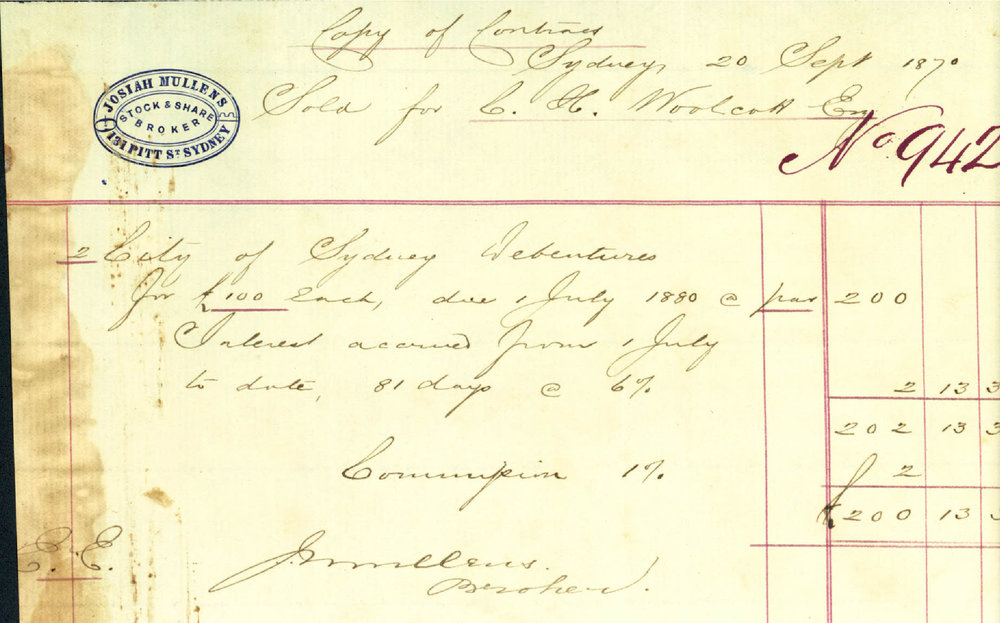 Copy of Contract
Sydney, 20 Sept 1870
JOSIAH MULLENS
STOCK & SHARE
BROKER
131 PITT ST SYDNEY
Sold for C. H. Woolcott Esq
No. 942
2 City of Sydney Debentures
for £100 Each, due 1 July 1880 @ par 200
Interest accrued from 1 July
to date, 81 days @ 6% 2 13 3
202 13 3
Commission 1% 2
£ 200 13 3
E. E.
J Mullens.
Broker.